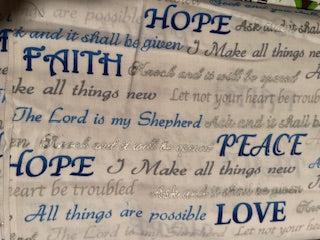 things are possible HOPE Ask and it shall
and it shall be given I Make all things
FAITH Knock and it will be opened
ke all things new Let not your heart be troubl
The Lord is my Shepherd Ask and it shall be
Knock and it will be opened PEACE
HOPE I Make all things new
heart be troubled Ask and it shall be given
The Lord is my Shepherd Let not your heart
All things are possible LOVE